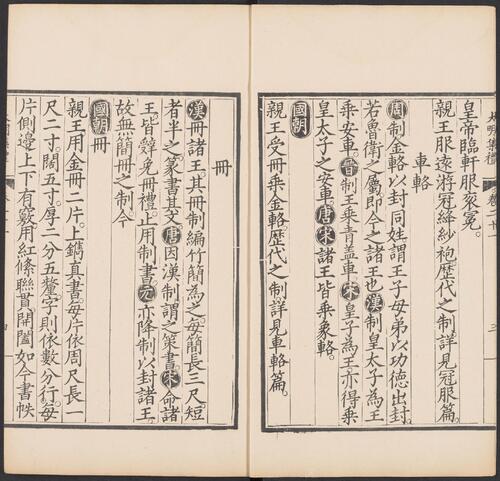 皇帝臨軒服衮冕。
親王服遠游冠絳紗袍歷代之制詳見冠服篇。
車輅
周制金輅以封同姓謂王子母弟以功德出封
若魯衛之屬即今之諸王也漢制皇太子為王
乘安車。晉制王乘青蓋車。宋皇子為王亦得乘
皇太子之安車。唐宋諸王皆乘象輅。
國朝
親王受冊乘金輅。歷代之制詳見車輅篇。
冊
漢冊諸王。其冊制編竹簡為之。每簡長三尺短
者半之。篆書其文。唐因漢制謂之策書。宋命諸
王。皆辭免冊禮。止用制書。元亦降制以封諸王。
故無簡冊之制。今
國朝冊
親王用金冊二片。上鐫真書。每片依周尺長一
尺二寸。闊五寸。厚二分五釐。字則依數分行。每
片側邊上下有竅。用紅絛聯貫。開闔如今書帙